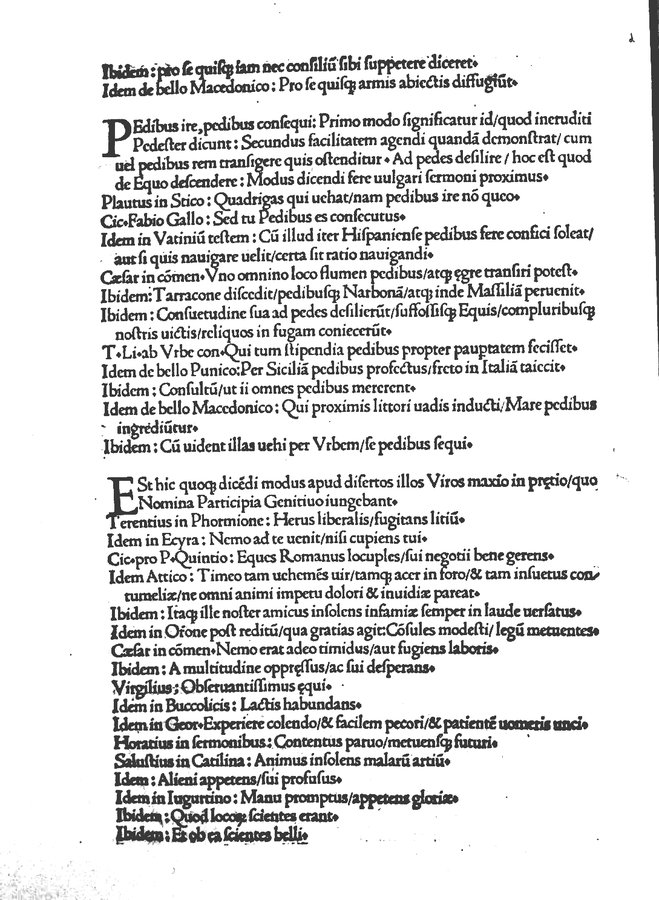 Ibidem: pro se quisq̃ iam nec consiliũ sibi suppetere diceret.
Idem de bello Macedonico: Pro se quisq̃ armis abiectis diffugiũt.
PEdibus ire, pedibus consequi: Primo modo significatur id/quod ineruditi
Pedester dicunt: Secundus facilitatem agendi quandã demonstrat/ cum
uel pedibus rem transigere quis ostenditur. Ad pedes desilire/ hoc est quod
de Equo descendere: Modus dicendi fere uulgari sermoni proximus.
Plautus in Stico: Quadrigas qui uehat/nam pedibus ire nõ queo.
Cic.Fabio Gallo: Sed tu Pedibus es consecutus.
Idem in Vatiniũ testem: Cũ illud iter Hispaniense pedibus fere confici soleat/
aut si quis nauigare uelit/certa sit ratio nauigandi.
Cæsar in cõmen. Vno omnino loco flumen pedibus/atq̃ ęgre transiri potest.
Ibidem: Tarracone discedit/pedibusq̃ Narbonã/atq̃ inde Massiliã peruenit.
Ibidem: Consuetudine sua ad pedes desilierũt/suffossisq̃ Equis/compluribusq̃
nostris uictis/reliquos in fugam coniecerũt.
T. Li. ab Vrbe con. Qui tum stipendia pedibus propter paupertatem fecisset.
Idem de bello Punico: Per Siciliã pedibus profectus/freto in Italiã taiecit.
Ibidem: Consultũ/ut ii omnes pedibus mererent.
Idem de bello Macedonico: Qui proximis littori uadis inducti/Mare pedibus
ingrediũtur.
Ibidem: Cũ uident illas uehi per Vrbem/se pedibus sequi.
ESt hic quoq̃ dicẽdi modus apud disertos illos Viros maxio in pretio/quo
Nomina Participia Genitiuo iungebant.
Terentius in Phormione: Herus liberalis/fugitans litiũ.
Idem in Ecyra: Nemo ad te uenit/nisi cupiens tui.
Cic.pro P.Quintio: Eques Romanus locuples/sui negotii bene gerens.
Idem Attico: Timeo tam uehemẽs uir/tamq̃ acer in foro/& tam insuetus con-
tumeliæ/ne omni animi impetu dolori & inuidiæ pareat.
Ibidem: Itaq̃ ille noster amicus insolens infamiæ semper in laude uersatus.
Idem in Orõne post reditũ/qua gratias agit: Cõsules modesti/ legũ metuentes.
Cæsar in cõmen. Nemo erat adeo timidus/aut fugiens laboris.
Ibidem: A multitudine oppręssus/ac sui desperans.
Virgilius: Obseruantissimus ęqui.
Idem in Buccolicis: Lactis habundans.
Idem in Geor. Experiere colendo/& facilem pecori/& patientẽ uomeris unci.
Horatius in sermonibus: Contentus paruo/metuensq̃ futuri.
Salustius in Catilina: Animus insolens malarũ artiũ.
Idem: Alieni appetens/sui profusus.
Idem in Iugurtino: Manu promptus/appetens gloriæ.
Ibidem: Quod locoꝝ scientes erant.
Ibidem: Et ob ea scientes belli.